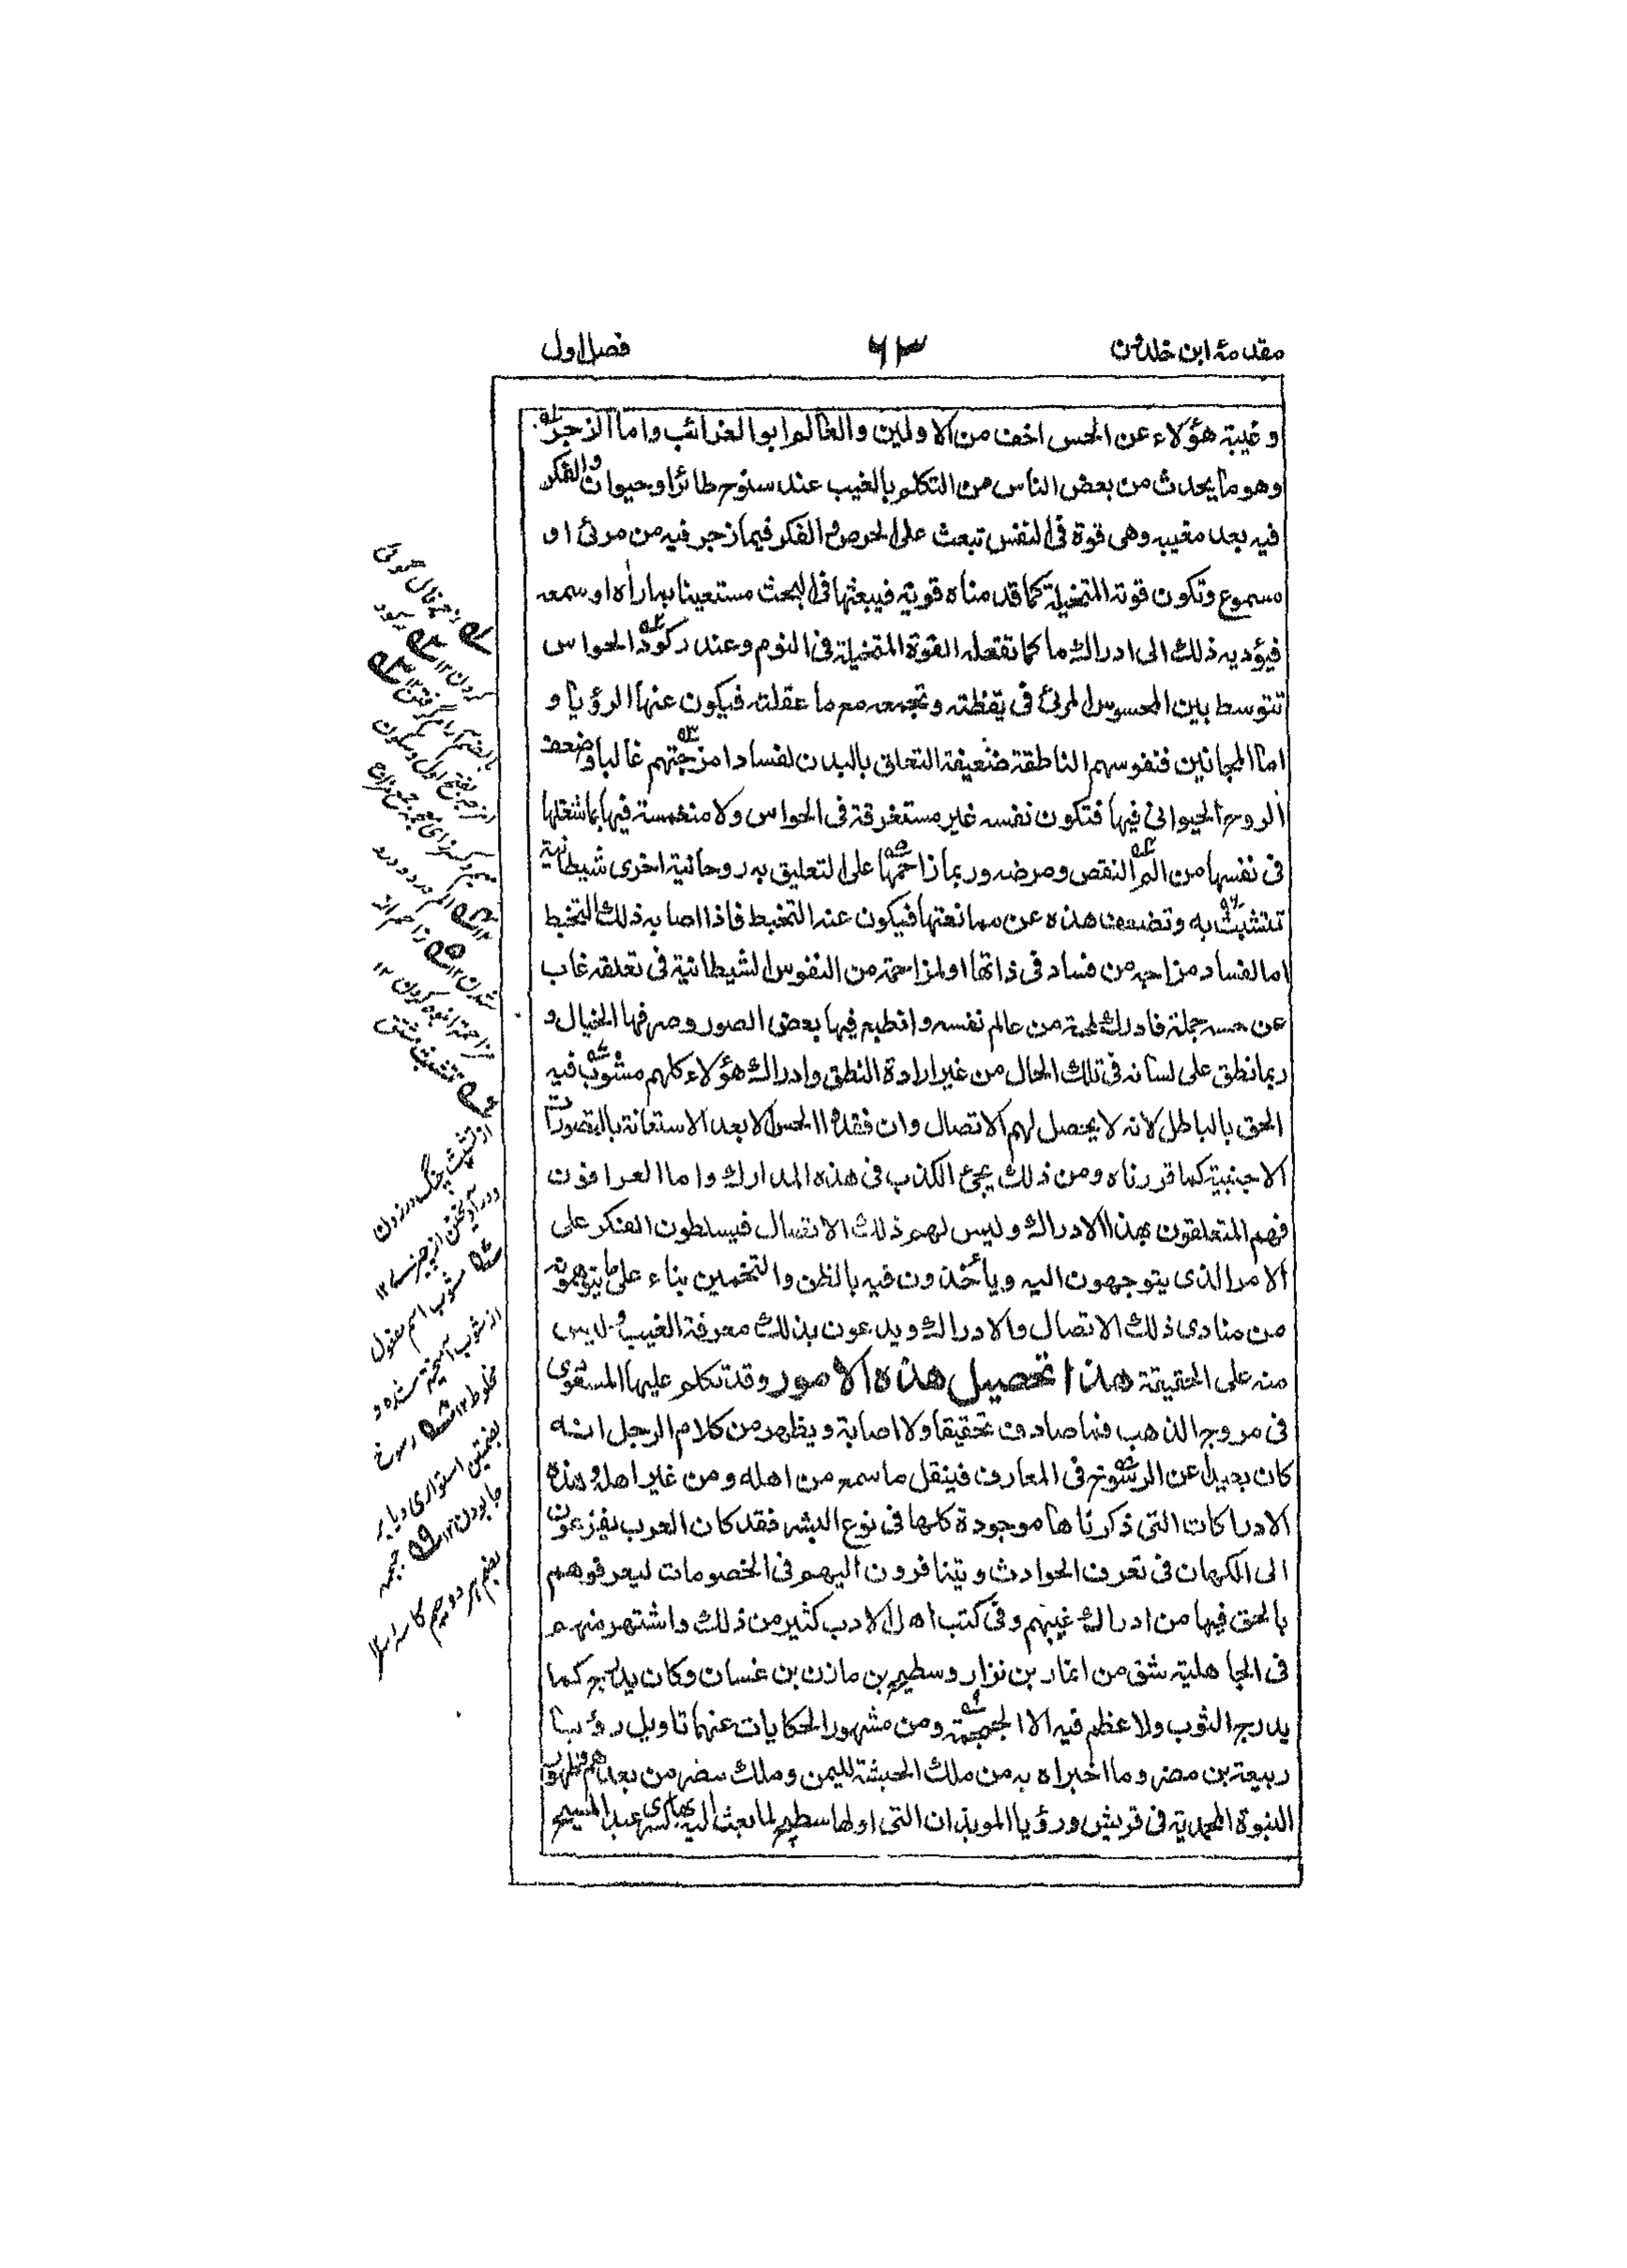 مقدمۂ ابن خلدون ٦٣ فصل اول
وغيبة هؤلاء عن الحس اخف من الاولين والعالم ابو الغرائب واما الزجر
وهو ما يحدث من بعض الناس من التكلم بالغيب عند سنوح طائر او حيوان والفكر
فيه بعد مغيبه وهى قوة فى النفس تبعث على الحرص والفكر فيما زجر فيه من مرئ او
مسموع وتكون قوته المتخيلة كما قدمناه قوية فيبعثها فى البحث مستعينا بما رأه او سمعه
فيؤديه ذلك الى ادراك ما كما تفعله القوة المتخيلة فى النوم وعند ركود الحواس
تتوسط بين المحسوس المرئ فى يقظته وتجمعه مع ما عقلته فيكون عنها الرؤيا و
اما المجانين فنفوسهم الناطقة ضعيفة التعلق بالبدن لفساد امزجتهم غالبا وضعف
الروح الحيوانى فيها فتكون نفسه غير مستغرقة فى الحواس ولا منغمسة فيها بما شغلها
فى نفسها من الم النقص ومرضه وربما زاحمها على التعليق به روحانية اخرى شيطانية
تتشبث به وتضعف هذه عن ممانعتها فيكون عنه التخبط فاذا اصابه ذلك التخبط
اما لفساد مزاجه من فساد فى ذاتها او لمزاحمة من النفوس الشيطانية فى تعلقه غاب
عن حسه جملة فادرك لمحة من عالم نفسه وانطبع فيها بعض الصور وصرفها الخيال و
ربما نطق على لسانه فى تلك الحال من غير ارادة النطق وادراك هؤلاء كلهم مشوب فيه
الحق بالباطل لانه لا يحصل لهم الاتصال وان فقدوا الحس الا بعد الاستعانة بالتصورات
الاجنبية كما قررناه ومن ذلك يجئ الكذب فى هذه المدارك واما العرافون
فهم المتعلقون بهذا الادراك وليس لهم ذلك الاتصال فيسلطون الفكر على
الامر الذى يتوجهون اليه وياخذون فيه بالظن والتخمين بناء على ما يتوهمونه
من مبادى ذلك الاتصال والادراك ويدعون بذلك معرفة الغيب وليس
منه على الحقيقة هذا تحصيل هذه الامور وقد تكلم عليها المسعودى
فى مروج الذهب فما صادف تحقيقا ولا اصابة ويظهر من كلام الرجل انه
كان بعيدا عن الرسوخ فى المعارف فينقل ما سمع من اهله ومن غير اهله وهذه
الادراكات التى ذكرناها موجودة كلها فى نوع البشر فقد كان العرب يفزعون
الى الكهان فى تعرف الحوادث ويتنافرون اليهم فى الخصومات ليعرفوهم
بالحق فيها من ادراك غيبهم وفى كتب اهل الادب كثير من ذلك واشتهر منهم
فى الجاهلية شق من انمار بن نزار وسطيح بن مازن بن غسان وكان يدرج كما
يدرج الثوب ولا عظم فيه الا الجمجمة ومن مشهور الحكايات عنهما تاويل رؤيا
ربيعة بن مضر وما اخبراه به من ملك الحبشة لليمن وملك مضر من بعدهم وظهور
النبوة المحمدية فى قريش ورؤيا الموبذان التى اولها سطيح لما بعث اليه بها كسرى عبد المسيح
زجر فال گوئى
كردن ١٢
ركود
امزجه بفتح اول وسكون
الم درد و
شدن ١٢
مزاحمة انبوه كردن ١٢
تشبث مشتق
از تشبث چنگ در زدن
و در آويختن از چيزے ١٢
مشوب اسم مفعول
از شوب آميخته شده و
مخلوط ١٢ رسوخ
بضمتين استوارى و پا بر
جا بودن ١٢ جمجمه
بضم هر دو جيم كاسه سر